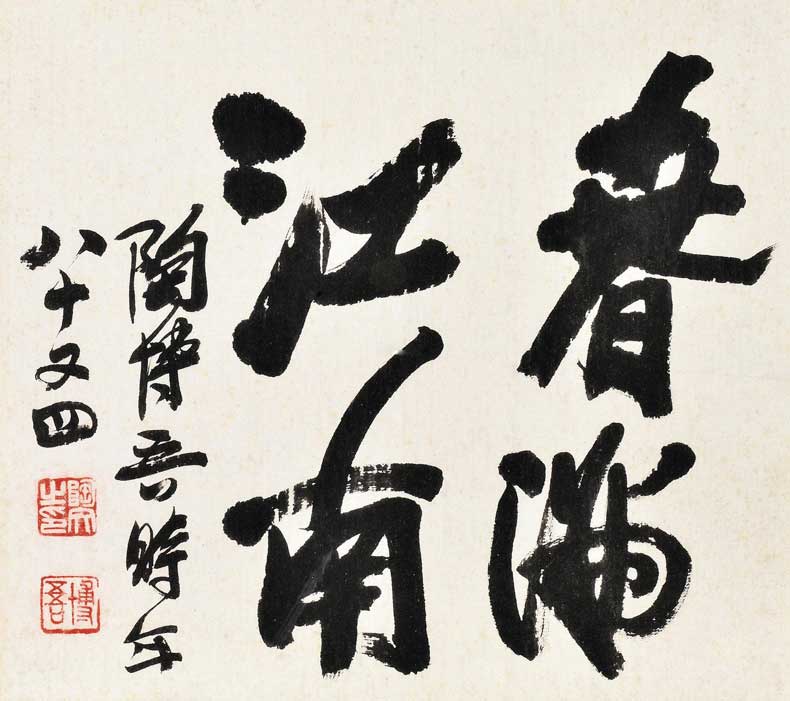 春滿
江南
陶博吾時年
八十又四
陶文之印
博吾